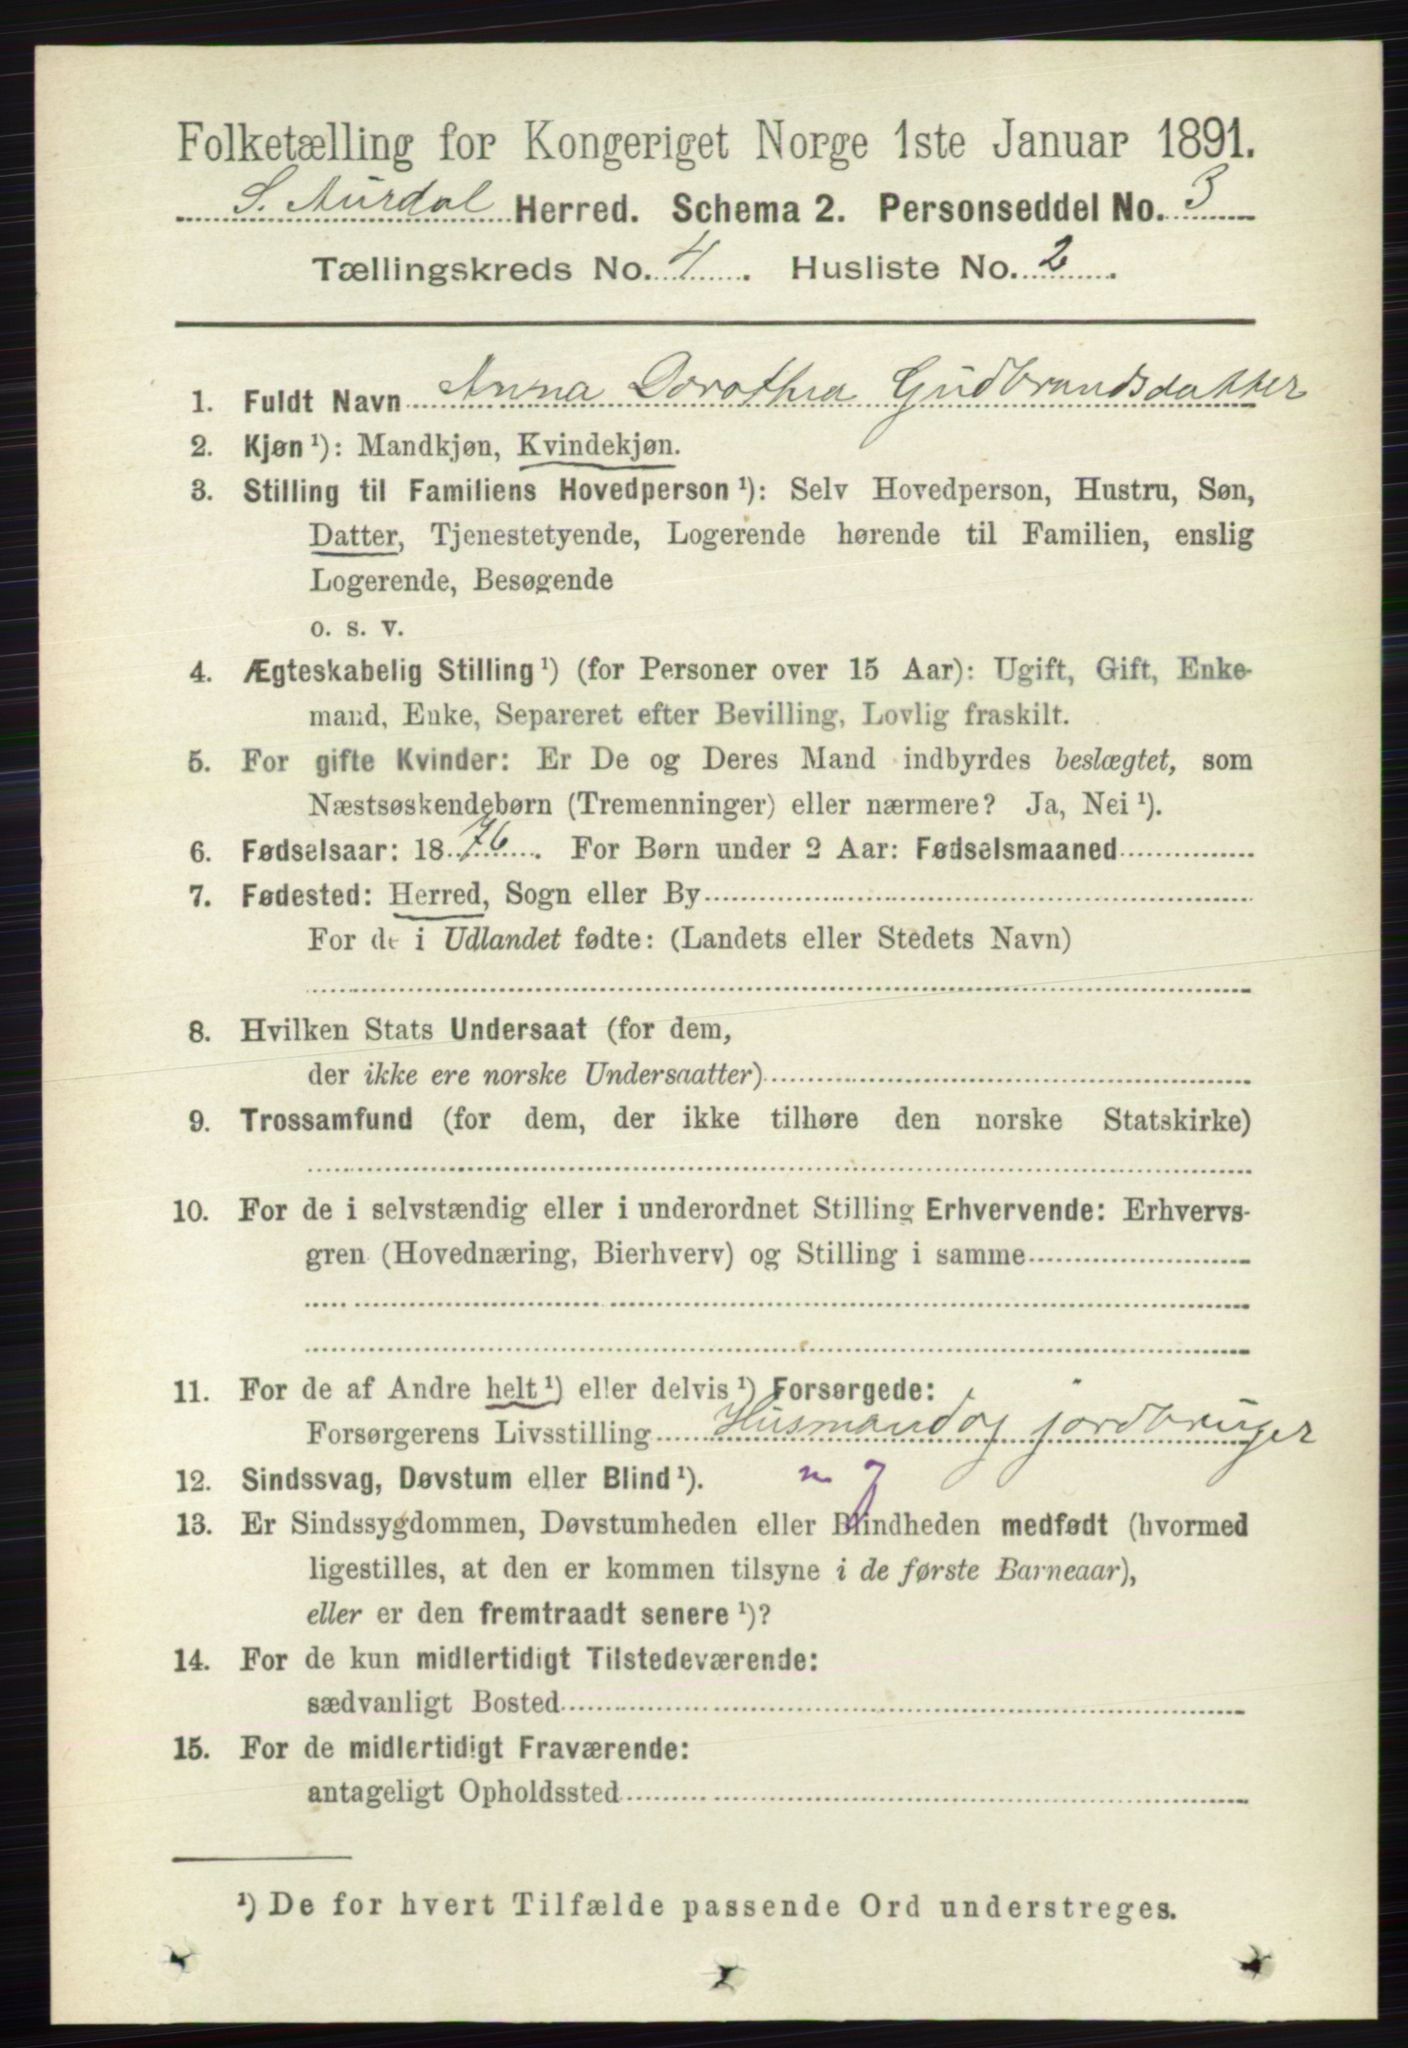 Folketælling for Kongeriget Norge 1ste Januar 1891.
S. Aurdal Herred. Schema 2. Personseddel No. 3
Tællingskreds No. 4. Husliste No. 2.
1. Fuldt Navn Anna Dorothea Gudbrandsdatter
2. Kjøn ¹): Mandkjøn, Kvindekjøn.
3. Stilling til Familiens Hovedperson ¹): Selv Hovedperson, Hustru, Søn,
Datter, Tjenestetyende, Logerende hørende til Familien, enslig
Logerende, Besøgende
o. s. v.
4. Ægteskabelig Stilling ¹) (for Personer over 15 Aar): Ugift, Gift, Enke-
mand, Enke, Separeret efter Bevilling, Lovlig fraskilt.
5. For gifte Kvinder: Er De og Deres Mand indbyrdes beslægtet, som
Næstsøskendebørn (Tremenninger) eller nærmere? Ja, Nei ¹).
6. Fødselsaar: 1876. For Børn under 2 Aar: Fødselsmaaned
7. Fødested: Herred, Sogn eller By
For de i Udlandet fødte: (Landets eller Stedets Navn)
8. Hvilken Stats Undersaat (for dem,
der ikke ere norske Undersaatter)
9. Trossamfund (for dem, der ikke tilhøre den norske Statskirke)
10. For de i selvstændig eller i underordnet Stilling Erhvervende: Erhvervs-
gren (Hovednæring, Bierhverv) og Stilling i samme
11. For de af Andre helt ¹) eller delvis ¹) Forsørgede:
Forsørgerens Livsstilling Husmand og jordbruger
12. Sindssvag, Døvstum eller Blind ¹). n j
13. Er Sindssygdommen, Døvstumheden eller Blindheden medfødt (hvormed
ligestilles, at den er kommen tilsyne i de første Barneaar),
eller er den fremtraadt senere ¹)?
14. For de kun midlertidigt Tilstedeværende:
sædvanligt Bosted
15. For de midlertidigt Fraværende:
antageligt Opholdssted
¹) De for hvert Tilfælde passende Ord understreges.